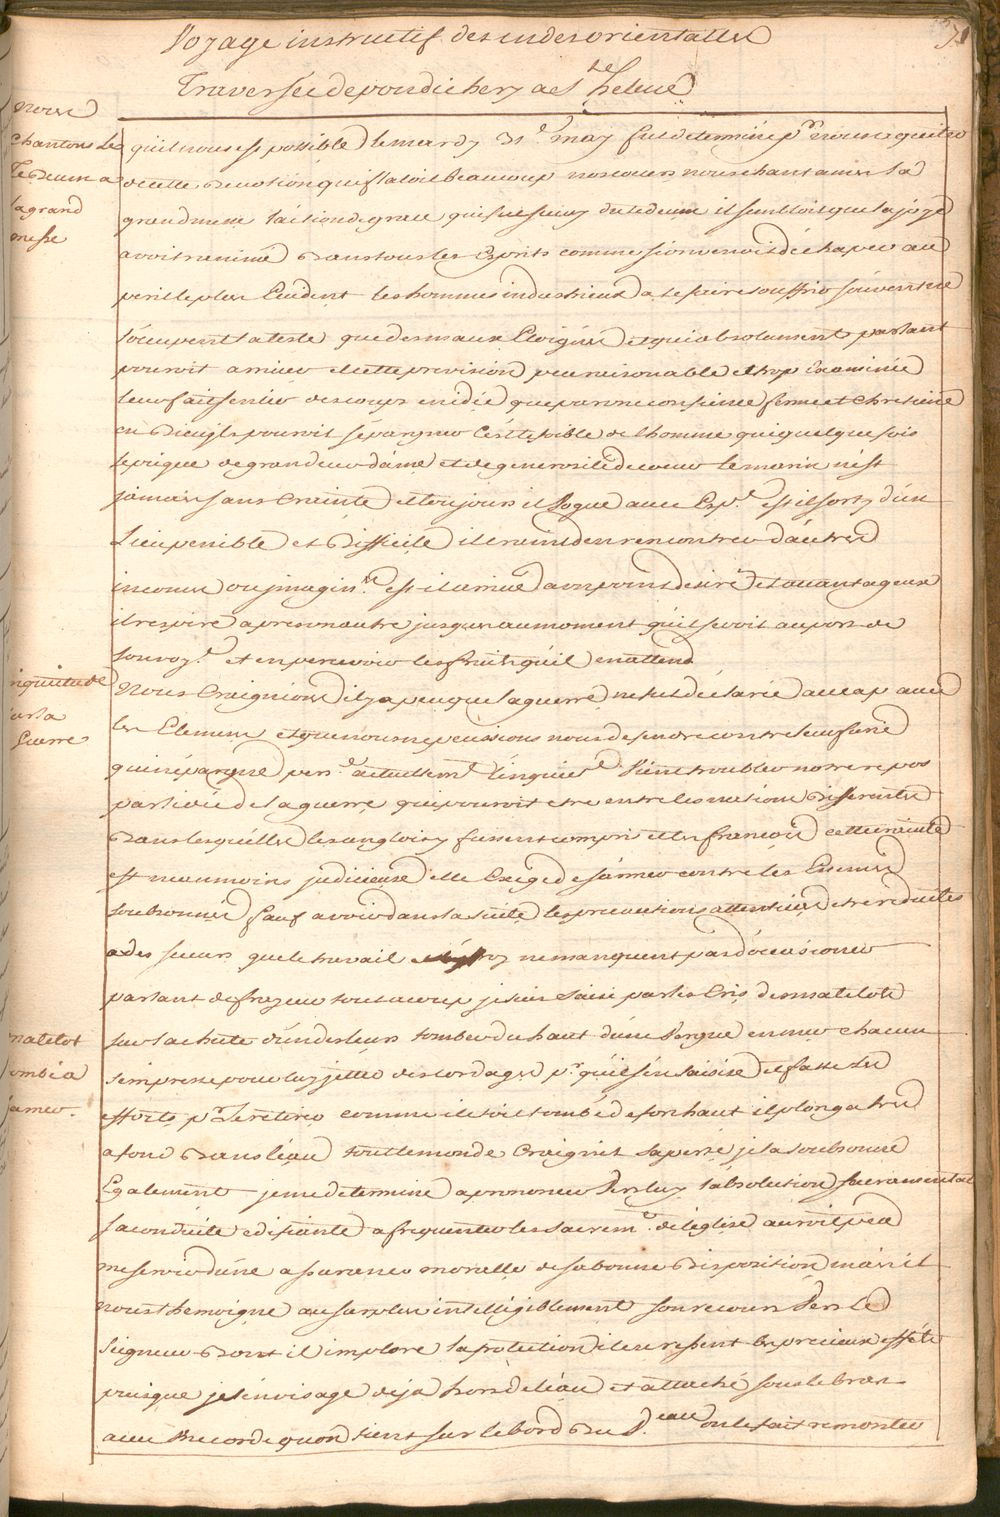 Voyage instructif des indes orientalles
Traversée de pondichery a Ste helene
nous
chantons le
Te Deum a
la grand
messe
qu'il nous est possible le mardy 31e may fut determiné pr nous
de cette devotion qui flatoit beaucoup nos coeurs nous chantames la
grand messe l'action de grace qui fut suivy du tedeum il sembloit que la joye
avoit renimé dans tous les Esprits comme si on venoit d'échaper au
peril le plus Evident les hommes industrieux a se faire souffrir souvent se
l'ocupent la teste que des maux Eloignés et qui absolument parlant
pouroit arriver et cette prevision peu raisonable et trop Examinée
leur fait sentir des coups en idée que par une confience ferme et Chretiene
en Dieu ils pouroit s'épargner c'est le foible de l'homme qui quelque fois
se pique de grandeur d'ame et de generosité de coeur le marin n'est
jamais sans Crainte et toujours il Vogue avec Esp.e est il sorty d'un
Lieu penible et Difficile il craint d'en rencontrer d'autres
inconus ou imagin.res est il arrivé a un point desiré et avantageux
il respire apres un autre jusques au moment qu'il se voit au port de
son voy.e et en percevoir les fruits qu'il en attend
inquietude
sur la
Guerre
Nous Craignions il y a peu que la guerre ne fut déclarée au cap avec
les Elemens et que nous ne peussions nous defendre contre leur furie
qui n'épargne per.e actuellemt l'inquied.e vient troubler notre repos
par l'idée de la guerre qui pouroit etre entre les nations Differentes
Dans lesquelles les anglois y fussent compris et les francois cette crainte
est neanmoins judicieuse elle Exige de s'armer contre les Enemis
soubsonnés sauf a voir dans la suite les precautions attentives etre reduites
a des sueurs que le travail ne manquent pas d'occasioner
matelot
tombé a
la mer.
parlant de frayeur tout a coup je suis saisi par les Cris des matelots
sur la chute d'un des leurs tombé du haut d'une Vergue en mer chacun
s'empresse pour luy jetter des cordages pr qu'il s'en saisisse et fasse ses
efforts pr le retirer comme il étoit tombé de fort haut il plongea tres
a fond Dans l'eau tout le monde Craignit sa perte je la soubsonne
Egalement je me determine a prononcer Vers luy l'absolution sacramentale
sa conduite edifiante a frequenter les sacrem.s de l'eglise auroit peu
me servir d'une asurance moralle de sa bonne Disposition mais il
nous themoigne au surplus intelligiblement son recours Vers le
Seigneur Dont il implore la protection il en ressent les precieux effets
puisque je l'envisage deja hors de l'eau et attaché sous le bras
avec une corde qu'on tient sur le bord Du V.eau on le fait remonter